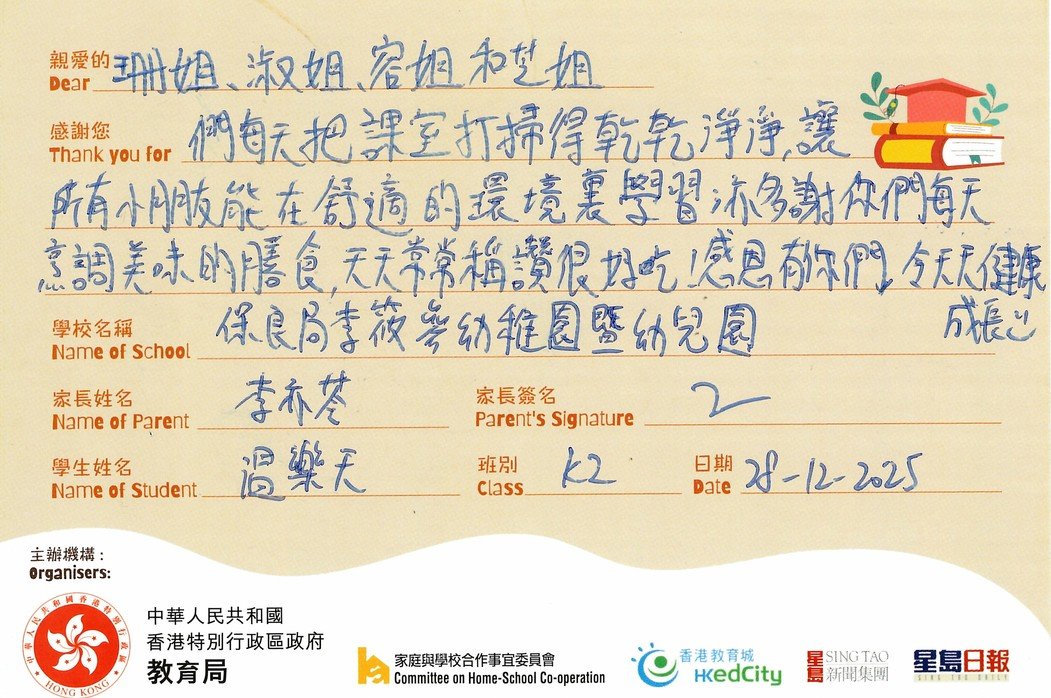 親愛的 珊姐、淑姐、容姐和芝姐
Dear
感謝您 們每天把課室打掃得乾乾淨淨,讓
Thank you for
所有小朋友能在舒適的環境裏學習,亦多謝你們每天
烹調美味的膳食,天天常常稱讚很好吃!感恩有你們,令天天健康
成長!
學校名稱 保良局李筱參幼稚園暨幼兒園
Name of School
家長姓名 李亦苓 家長簽名
Name of Parent Parent's Signature
學生姓名 溫樂天 班別 K2 日期 28-12-2025
Name of Student Class Date
主辦機構:
Organisers:
中華人民共和國香港特別行政區
HONG KONG
中華人民共和國
香港特別行政區政府
教育局
家庭與學校合作事宜委員會
Committee on Home-School Co-operation
香港教育城
HKedCity
星島 SING TAO
新聞集團
星島日報
SING TAO DAILY